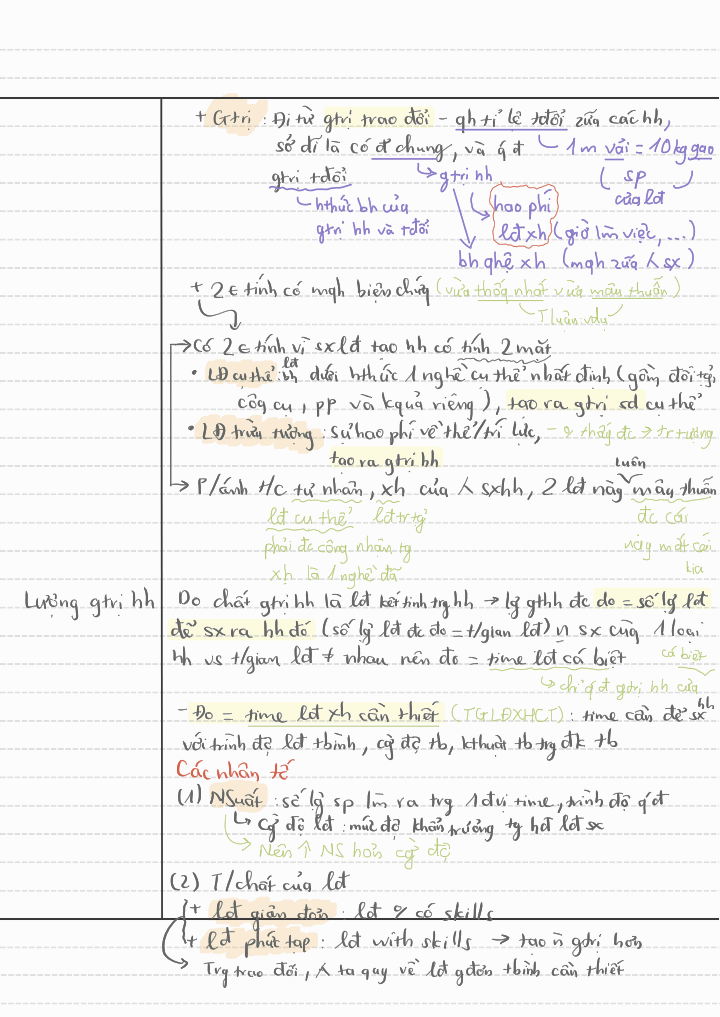 + Gtrị : Đi từ gtrị trao đổi - qh tỉ lệ tđổi zữa các hh,
sở dĩ là có đ' chung, và q đ
1m vải = 10kg gạo
gtrị tđổi
gtrị hh
sp
của lđ
hthức bh của
gtrị hh và tđổi
hao phí
lđxh (giờ làm việc, ...)
bh qhệ xh (mqh zữa ng sx)
+ 2 t tính có mqh biện chứng (vừa thốg nhất vừa mâu thuẫn)
T luân vđụ
→ Có 2 t tính vì sx lđ tạo hh có tính 2 mặt
• LĐ cụ thể : lđ hh dưới hthức 1 nghề cụ thể nhất định (gồm đối tg,
côg cụ, pp và kquả riêng), tạo ra gtrị sd cụ thể
• LĐ trừu tượng : sự hao phí về thể/trí lực, - 0 thấy đc → tr tượng
tạo ra gtrị hh
luôn
→ P/ánh t/c tư nhân, xh của ng sxhh, 2 lđ này mâu thuẫn
lđ cụ thể lđ tr tg
đc cái
phải đc công nhận tg
này mất cái
xh là 1 nghề đã
kia
Lượng gtrị hh
Do chất gtrị hh là lđ kết tinh trg hh → lg gthh đc đo = số lg lđ
để sx ra hh đó (số lg lđ đc đo = t/gian lđ) n sx cùng 1 loại
hh vs t/gian lđ ≠ nhau nên đo = time lđ cá biệt
cá biệt
→ chỉ q đ gtrị hh của
- Đo = time lđ xh cần thiết (TGLĐXHCT) : time cần để sx hh
với trình độ lđ tbình, cg độ tb, kthuật tb trg đk tb
Các nhân tố
(1) NSuất : số lg sp làm ra trg 1 đvị time, trình độ q đ
→ Cg độ lđ : mức độ khẩn trương tg hđ lđ sx
→ Nên ↑ NS hơn cg độ
(2) T/chất của lđ
+ lđ giản đơn : lđ 0 có skills
+ lđ phức tạp : lđ with skills → tạo n gtrị hơn
→ Trg trao đổi, ng ta quy về lđ gđơn tbình cần thiết